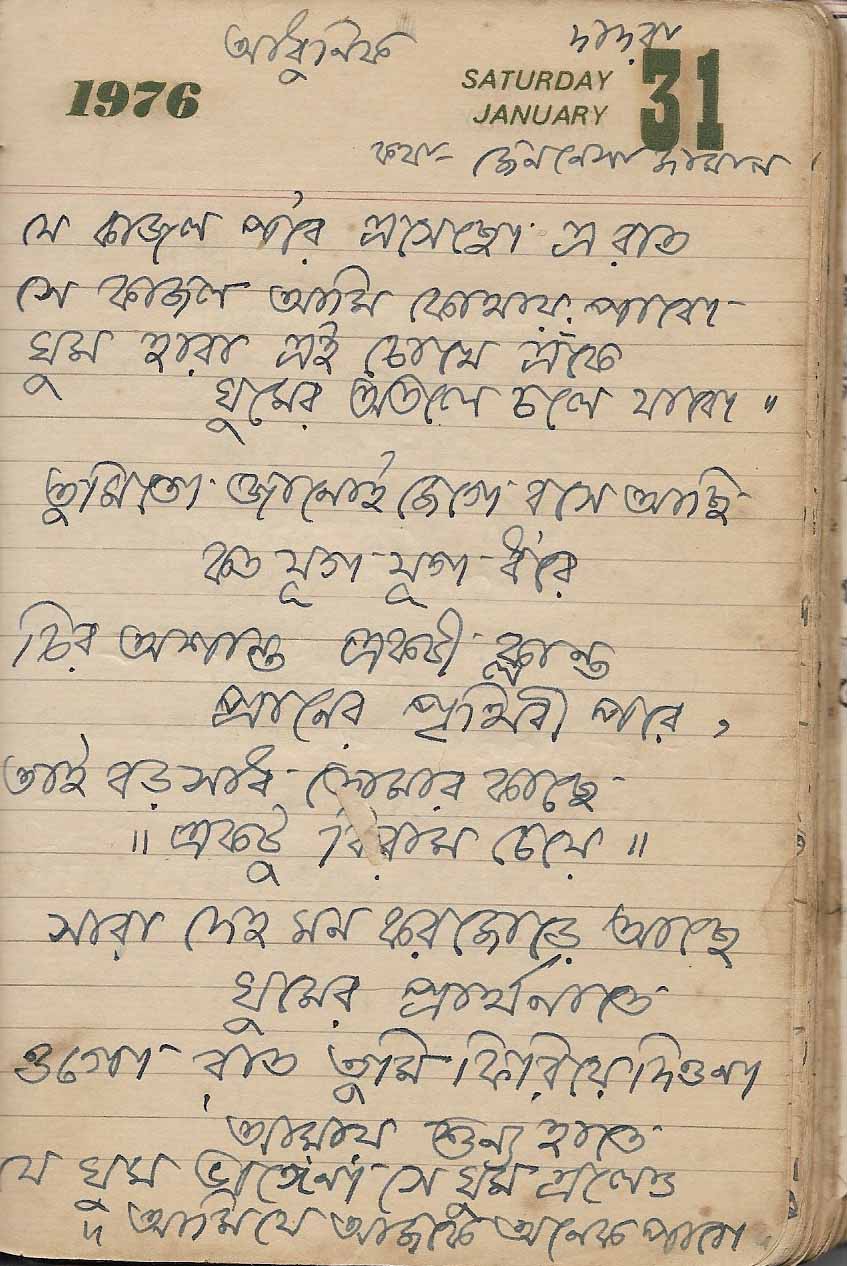 আধুনিক দাদরা
1976 SATURDAY JANUARY 31
কথা - জেবনেসা জামাল
যে কাজল প'রে এসেছো এ রাত
সে কাজল আমি কোথায় পাবো
ঘুম হারা এই চোখে এঁকে
ঘুমের অতলে চলে যাবো "
তুমিতো জানোই জেগে বসে আছি
কত যুগ যুগ ধ'রে
চির অশান্ত একটী ক্লান্ত
প্রানের পৃথিবী পরে,
তাই বড় সাধ তোমার কাছে
॥ একটু বিরাম চেয়ে ॥
সারা দেহ মন করজোড়ে আছে
ঘুমের প্রার্থনাতে
ওগো রাত তুমি ফিরিয়ে দিওনা
আমায় শুন্য হাতে
যে ঘুম ভাঙ্গেনা সে ঘুম এলেও
" আমি যে আজকে অনেক পাবো